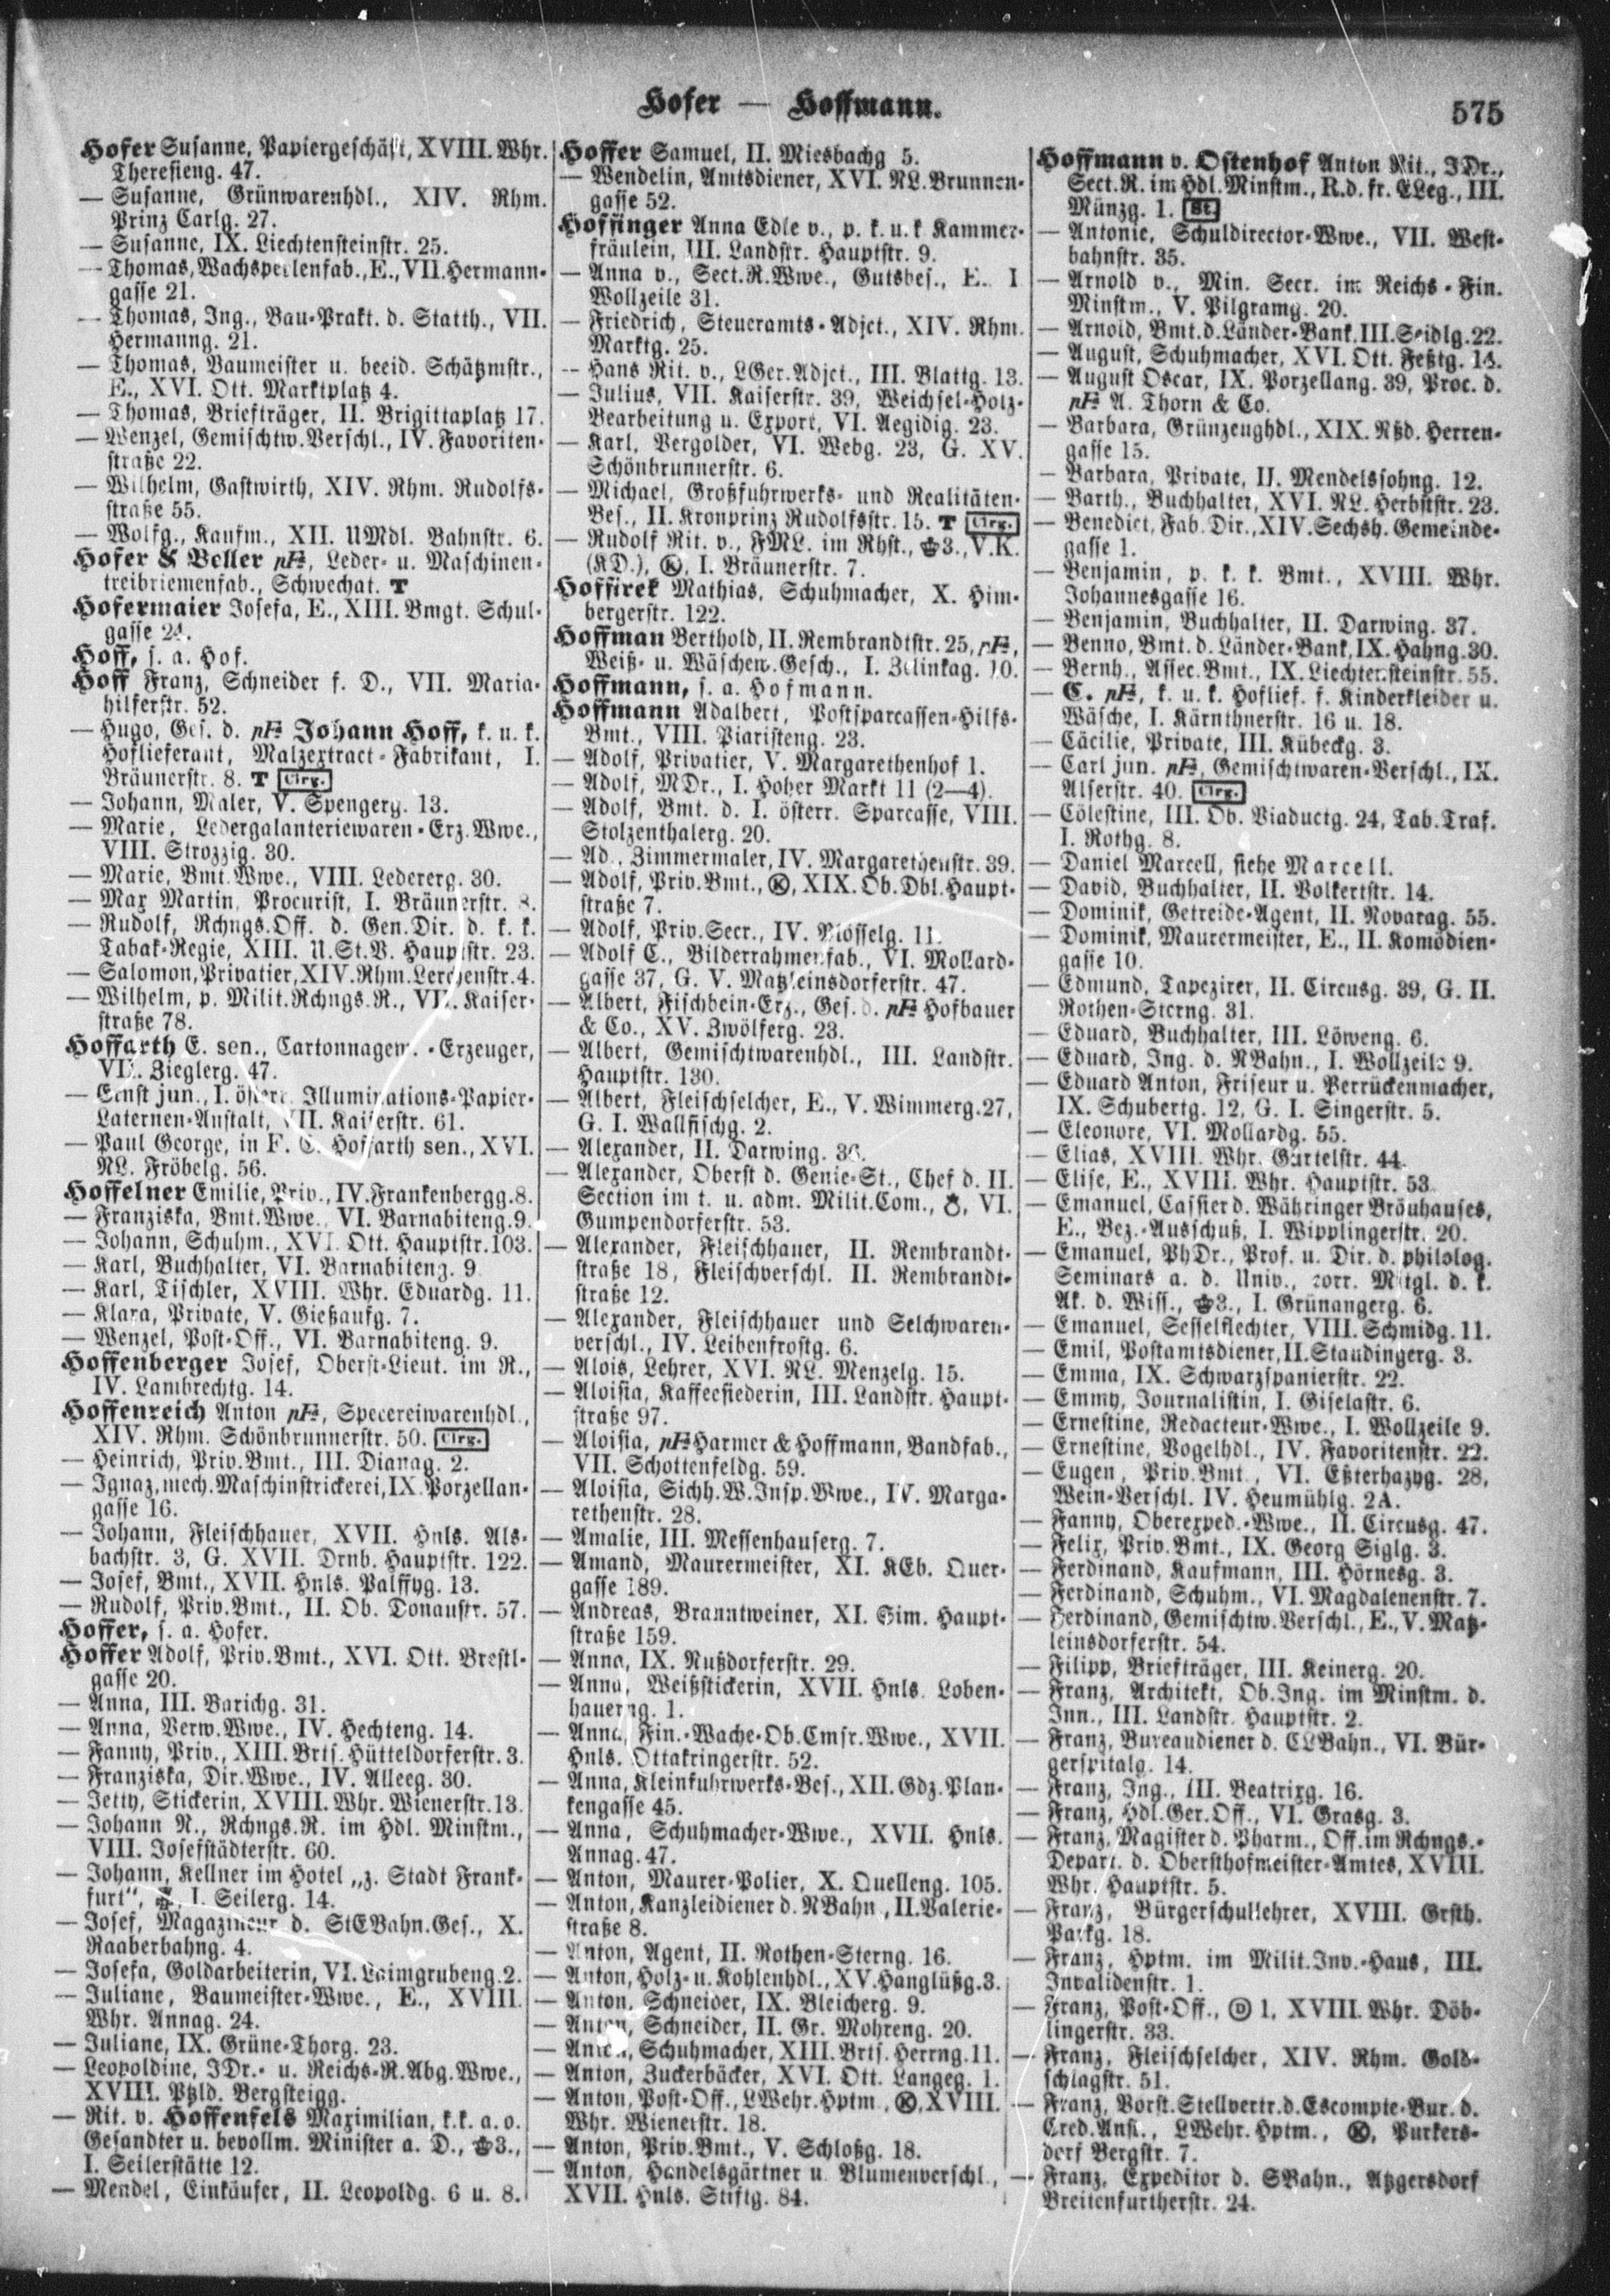 Hofer — Hoffmann.
575
Hofer Susanne, Papiergeschäft, XVIII. Whr.
Theresieng. 47.
— Susanne, Grünwarenhdl., XIV. Rhm.
Prinz Carlg. 27.
— Susanne, IX. Liechtensteinstr. 25.
— Thomas, Wachsperlenfab., E., VII. Hermann-
gasse 21.
— Thomas, Ing., Bau-Prakt. d. Statth., VII.
Hermanng. 21.
— Thomas, Baumeister u. beeid. Schätzmstr.,
E., XVI. Ott. Marktplatz 4.
— Thomas, Briefträger, II. Brigittaplatz 17.
— Wenzel, Gemischtw. Verschl., IV. Favoriten-
straße 22.
— Wilhelm, Gastwirth, XIV. Rhm. Rudolfs-
straße 55.
— Wolfg., Kaufm., XII. UMdl. Bahnstr. 6.
Hofer & Beller pF:, Leder- u. Maschinen-
treibriemenfab., Schwechat. T
Hofermaier Josefa, E., XIII. Bmgt. Schul-
gasse
Hoff, s. a. Hof.
Hoff Franz, Schneider f. D., VII. Maria-
hilferstr. 52.
— Hugo, Ges. d. pF: Johann Hoff, k. u. k.
Hoflieferant, Malzextract-Fabrikant, I.
Bräunerstr. 8. T Clrg.
— Johann, Maler, V. Spengerg. 13.
— Marie, Ledergalanteriewaren-Erz. Wwe.,
VIII. Strozzig. 30.
— Marie, Bmt. Wwe., VIII. Ledererg. 30.
— Max Martin, Procurist, I. Bräunerstr. 8.
— Rudolf, Rchngs. Off. d. Gen. Dir. d. k. k.
Tabak-Regie, XIII. U. St. V. Hauptstr. 23.
— Salomon, Privatier, XIV. Rhm. Lerchenstr. 4.
— Wilhelm, p. Milit. Rchngs. R., VII. Kaiser-
straße 78.
Hoffarth E. sen., Cartonnagew.-Erzeuger,
VII. Zieglerg. 47.
— Ernst jun., I. österr. Illuminations-Papier-
Laternen-Anstalt, VII. Kaiserstr. 61.
— Paul George, in F. E. Hoffarth sen., XVI.
NL. Fröbelg. 56.
Hoffelner Emilie, Priv., IV. Frankenbergg. 8.
— Franziska, Bmt. Wwe., VI. Barnabiteng. 9.
— Johann, Schuhm., XVI. Ott. Hauptstr. 103.
— Karl, Buchhalter, VI. Barnabiteng. 9.
— Karl, Tischler, XVIII. Whr. Eduardg. 11.
— Klara, Private, V. Gießaufg. 7.
— Wenzel, Post-Off., VI. Barnabiteng. 9.
Hoffenberger Josef, Oberst-Lieut. im R.,
IV. Lambrechtg. 14.
Hoffenreich Anton pF:, Specereiwarenhdl.,
XIV. Rhm. Schönbrunnerstr. 50. Clrg.
— Heinrich, Priv. Bmt., III. Dianag. 2.
— Ignaz, mech. Maschinstrickerei, IX. Porzellan-
gasse 16.
— Johann, Fleischhauer, XVII. Hnls. Als-
bachstr. 3, G. XVII. Drnb. Hauptstr. 122.
— Josef, Bmt., XVII. Hnls. Palffyg. 13.
— Rudolf, Priv. Bmt., II. Ob. Donaustr. 57.
Hoffer, s. a. Hofer.
Hoffer Adolf, Priv. Bmt., XVI. Ott. Brestl-
gasse 20.
— Anna, III. Barichg. 31.
— Anna, Verw. Wwe., IV. Hechteng. 14.
— Fanny, Priv., XIII. Brts. Hütteldorferstr. 3.
— Franziska, Dir. Wwe., IV. Alleeg. 30.
— Jetty, Stickerin, XVIII. Whr. Wienerstr. 13.
— Johann N., Rchngs. R. im Hdl. Minstm.,
VIII. Josefstädterstr. 60.
— Johann, Kellner im Hotel „z. Stadt Frank-
furt“, I. Seilerg. 14.
— Josef, Magazineur d. StEBahn. Ges., X.
Raaberbahng. 4.
— Josefa, Goldarbeiterin, VI. Laimgrubeng. 2.
— Juliane, Baumeister-Wwe., E., XVIII.
Whr. Annag. 24.
— Juliane, IX. Grüne-Thorg. 23.
— Leopoldine, JDr.- u. Reichs-R. Abg. Wwe.,
XVIII. Ptzld. Bergsteigg.
— Rit. v. Hoffenfels Maximilian, k. k. a. o.
Gesandter u. bevollm. Minister a. D., ♚3.,
I. Seilerstätte 12.
— Mendel, Einkäufer, II. Leopoldg. 6 u. 8.
Hoffer Samuel, II. Miesbachg 5.
— Wendelin, Amtsdiener, XVI. NL. Brunnen-
gasse 52.
Hoffinger Anna Edle v., p. k. u. k Kammer-
fräulein, III. Landstr. Hauptstr. 9.
— Anna v., Sect. R. Wwe., Gutsbes., E. I
Wollzeile 31.
— Friedrich, Steueramts-Adjct., XIV. Rhm.
Marktg. 25.
— Hans Rit. v., LGer. Adjct., III. Blattg. 13.
— Julius, VII. Kaiserstr. 39, Weichsel-Holz-
Bearbeitung u. Export, VI. Aegidig. 23.
— Karl, Vergolder, VI. Webg. 23, G. XV.
Schönbrunnerstr. 6.
— Michael, Großfuhrwerks- und Realitäten-
Bes., II. Kronprinz Rudolfsstr. 15. T Clrg.
— Rudolf Rit. v., FML. im Rhst., ♚3., V. K.
(KD.), Ⓚ, I. Bräunerstr. 7.
Hoffirek Mathias, Schuhmacher, X. Him-
bergerstr. 122.
Hoffman Berthold, II. Rembrandtstr. 25, pF:,
Weiß- u. Wäschew. Gesch., I. Zelinkag. 10.
Hoffmann, s. a. Hofmann.
Hoffmann Adalbert, Postsparcassen-Hilfs-
Bmt., VIII. Piaristeng. 23.
— Adolf, Privatier, V. Margarethenhof 1.
— Adolf, MDr., I. Hoher Markt 11 (2—4).
— Adolf, Bmt. d. I. österr. Sparcasse, VIII.
Stolzenthalerg. 20.
— Ad., Zimmermaler, IV. Margarethenstr. 39.
— Adolf, Priv. Bmt., Ⓚ, XIX. Ob. Dbl. Haupt-
straße 7.
— Adolf, Priv. Secr., IV. Plösselg. 11.
— Adolf C., Bilderrahmenfab., VI. Mollard-
gasse 37, G. V. Matzleinsdorferstr. 47.
— Albert, Fischbein-Erz., Ges. d. pF: Hofbauer
& Co., XV. Zwölferg. 23.
— Albert, Gemischtwarenhdl., III. Landstr.
Hauptstr. 130.
— Albert, Fleischselcher, E., V. Wimmerg. 27,
G. I. Wallfischg. 2.
— Alexander, II. Darwing.
— Alexander, Oberst d. Genie-St., Chef d. II.
Section im t. u. adm. Milit. Com., VI.
Gumpendorferstr. 53.
— Alexander, Fleischhauer, II. Rembrandt-
straße 18, Fleischverschl. II. Rembrandt-
straße 12.
— Alexander, Fleischhauer und Selchwaren-
verschl., IV. Leibenfrostg. 6.
— Alois, Lehrer, XVI. NL. Menzelg. 15.
— Aloisia, Kaffeesiederin, III. Landstr. Haupt-
straße 97.
— Aloisia, pF: Harmer & Hoffmann, Bandfab.,
VII. Schottenfeldg. 59.
— Aloisia, Sichh. W. Insp. Wwe., IV. Marga-
rethenstr. 28.
— Amalie, III. Messenhauserg. 7.
— Amand, Maurermeister, XI. KEb. Quer-
gasse 189.
— Andreas, Branntweiner, XI. Sim. Haupt-
straße 159.
— Anna, IX. Nußdorferstr. 29.
— Anna, Weißstickerin, XVII. Hnls. Loben-
hauerng. 1.
— Anna, Fin.-Wache-Ob. Cmsr. Wwe., XVII.
Hnls. Ottakringerstr. 52.
— Anna, Kleinfuhrwerks-Bes., XII. Gdz. Plan-
kengasse 45.
— Anna, Schuhmacher-Wwe., XVII. Hnls.
Annag. 47.
— Anton, Maurer-Polier, X. Quelleng. 105.
— Anton, Kanzleidiener d. NBahn, II. Valerie-
straße 8.
— Anton, Agent, II. Rothen-Sterng. 16.
— Anton, Holz- u. Kohlenhdl., XV. Hanglüßg. 3.
— Anton, Schneider, IX. Bleicherg. 9.
— Anton, Schneider, II. Gr. Mohreng. 20.
— Anton, Schuhmacher, XIII. Brts. Herrng. 11.
— Anton, Zuckerbäcker, XVI. Ott. Langeg. 1.
— Anton, Post-Off., LWehr. Hptm., Ⓚ, XVIII.
Whr. Wienerstr. 18.
— Anton, Priv. Bmt., V. Schloßg. 18.
— Anton, Handelsgärtner u. Blumenverschl.,
XVII. Hnls. Stiftg. 84.
Hoffmann v. Ostenhof Anton Rit., JDr.,
Sect. R. im Hdl. Minstm., R. d. fr. ELeg., III.
Münzg. 1. St.
— Antonie, Schuldirector-Wwe., VII. West-
bahnstr. 35.
— Arnold v., Min. Secr. im Reichs-Fin.
Minstm., V. Pilgramg. 20.
— Arnold, Bmt. d. Länder-Bank, III. Seidlg. 22.
— August, Schuhmacher, XVI. Ott. Feßtg.
— August Oscar, IX. Porzellang. 39, Proc. d.
pF: A. Thorn & Co.
— Barbara, Grünzeughdl., XIX. Nßd. Herren-
gasse 15.
— Barbara, Private, II. Mendelssohng. 12.
— Barth., Buchhalter, XVI. NL. Herbststr. 23.
— Benedict, Fab. Dir., XIV. Sechsh. Gemeinde-
gasse 1.
— Benjamin, p. k. k. Bmt., XVIII. Whr.
Johannesgasse 16.
— Benjamin, Buchhalter, II. Darwing. 37.
— Benno, Bmt. d. Länder-Bank, IX. Hahng. 30.
— Bernh., Assec. Bmt., IX. Liechtensteinstr. 55.
— C. pF:, k. u. k. Hoflief. f. Kinderkleider u.
Wäsche, I. Kärnthnerstr. 16 u. 18.
— Cäcilie, Private, III. Kübeckg. 3.
— Carl jun. pF:, Gemischtwaren-Verschl., IX.
Alserstr. 40. Clrg.
— Cölestine, III. Ob. Viaductg. 24, Tab. Traf.
I. Rothg. 8.
— Daniel Marcell, siehe Marcell.
— David, Buchhalter, II. Volkertstr. 14.
— Dominik, Getreide-Agent, II. Novarag. 55.
— Dominik, Maurermeister, E., II. Komödien-
gasse 10.
— Edmund, Tapezirer, II. Circusg. 39, G. II.
Rothen-Sterng. 31.
— Eduard, Buchhalter, III. Löweng. 6.
— Eduard, Ing. d. NBahn., I. Wollzeile 9.
— Eduard Anton, Friseur u. Perrückenmacher,
IX. Schubertg. 12, G. I. Singerstr. 5.
— Eleonore, VI. Mollardg. 55.
— Elias, XVIII. Whr. Gürtelstr. 44.
— Elise, E., XVIII. Whr. Hauptstr. 53.
— Emanuel, Cassier d. Währinger Bräuhauses,
E., Bez.-Ausschuß, I. Wipplingerstr. 20.
— Emanuel, PhDr., Prof. u. Dir. d. philolog.
Seminars a. d. Univ., corr. Mitgl. d. k.
Ak. d. Wiss., ♚3., I. Grünangerg. 6.
— Emanuel, Sesselflechter, VIII. Schmidg. 11.
— Emil, Postamtsdiener, II. Staudingerg. 3.
— Emma, IX. Schwarzspanierstr. 22.
— Emmy, Journalistin, I. Giselastr. 6.
— Ernestine, Redacteur-Wwe., I. Wollzeile 9.
— Ernestine, Vogelhdl., IV. Favoritenstr. 22.
— Eugen, Priv. Bmt., VI. Eßterhazyg. 28,
Wein-Verschl. IV. Heumühlg. 2A.
— Fanny, Oberexped.-Wwe., II. Circusg. 47.
— Felix, Priv. Bmt., IX. Georg Siglg. 3.
— Ferdinand, Kaufmann, III. Hörnesg. 3.
— Ferdinand, Schuhm., VI. Magdalenenstr. 7.
— Ferdinand, Gemischtw. Verschl., E., V. Matz-
leinsdorferstr. 54.
— Filipp, Briefträger, III. Keinerg. 20.
— Franz, Architekt, Ob. Ing. im Minstm. d.
Inn., III. Landstr. Hauptstr. 2.
— Franz, Bureaudiener d. CLBahn., VI. Bür-
gerspitalg. 14.
— Franz, Ing., III. Beatrixg. 16.
— Franz, Hdl. Ger. Off., VI. Grasg. 3.
— Franz, Magister d. Pharm., Off. im Rchngs.-
Depart. d. Obersthofmeister-Amtes, XVIII.
Whr. Hauptstr. 5.
— Franz, Bürgerschullehrer, XVIII. Grsth.
Parkg. 18.
— Franz, Hptm. im Milit. Inv.-Haus, III.
Invalidenstr. 1.
— Franz, Post-Off., Ⓓ 1, XVIII. Whr. Döb-
lingerstr. 33.
— Franz, Fleischselcher, XIV. Rhm. Gold-
schlagstr. 51.
— Franz, Vorst. Stellvertr. d. Escompte-Bur. d.
Cred. Anst., LWehr. Hptm., Ⓚ, Purkers-
dorf Bergstr. 7.
— Franz, Expeditor d. SBahn., Atzgersdorf
Breitenfurtherstr. 24.